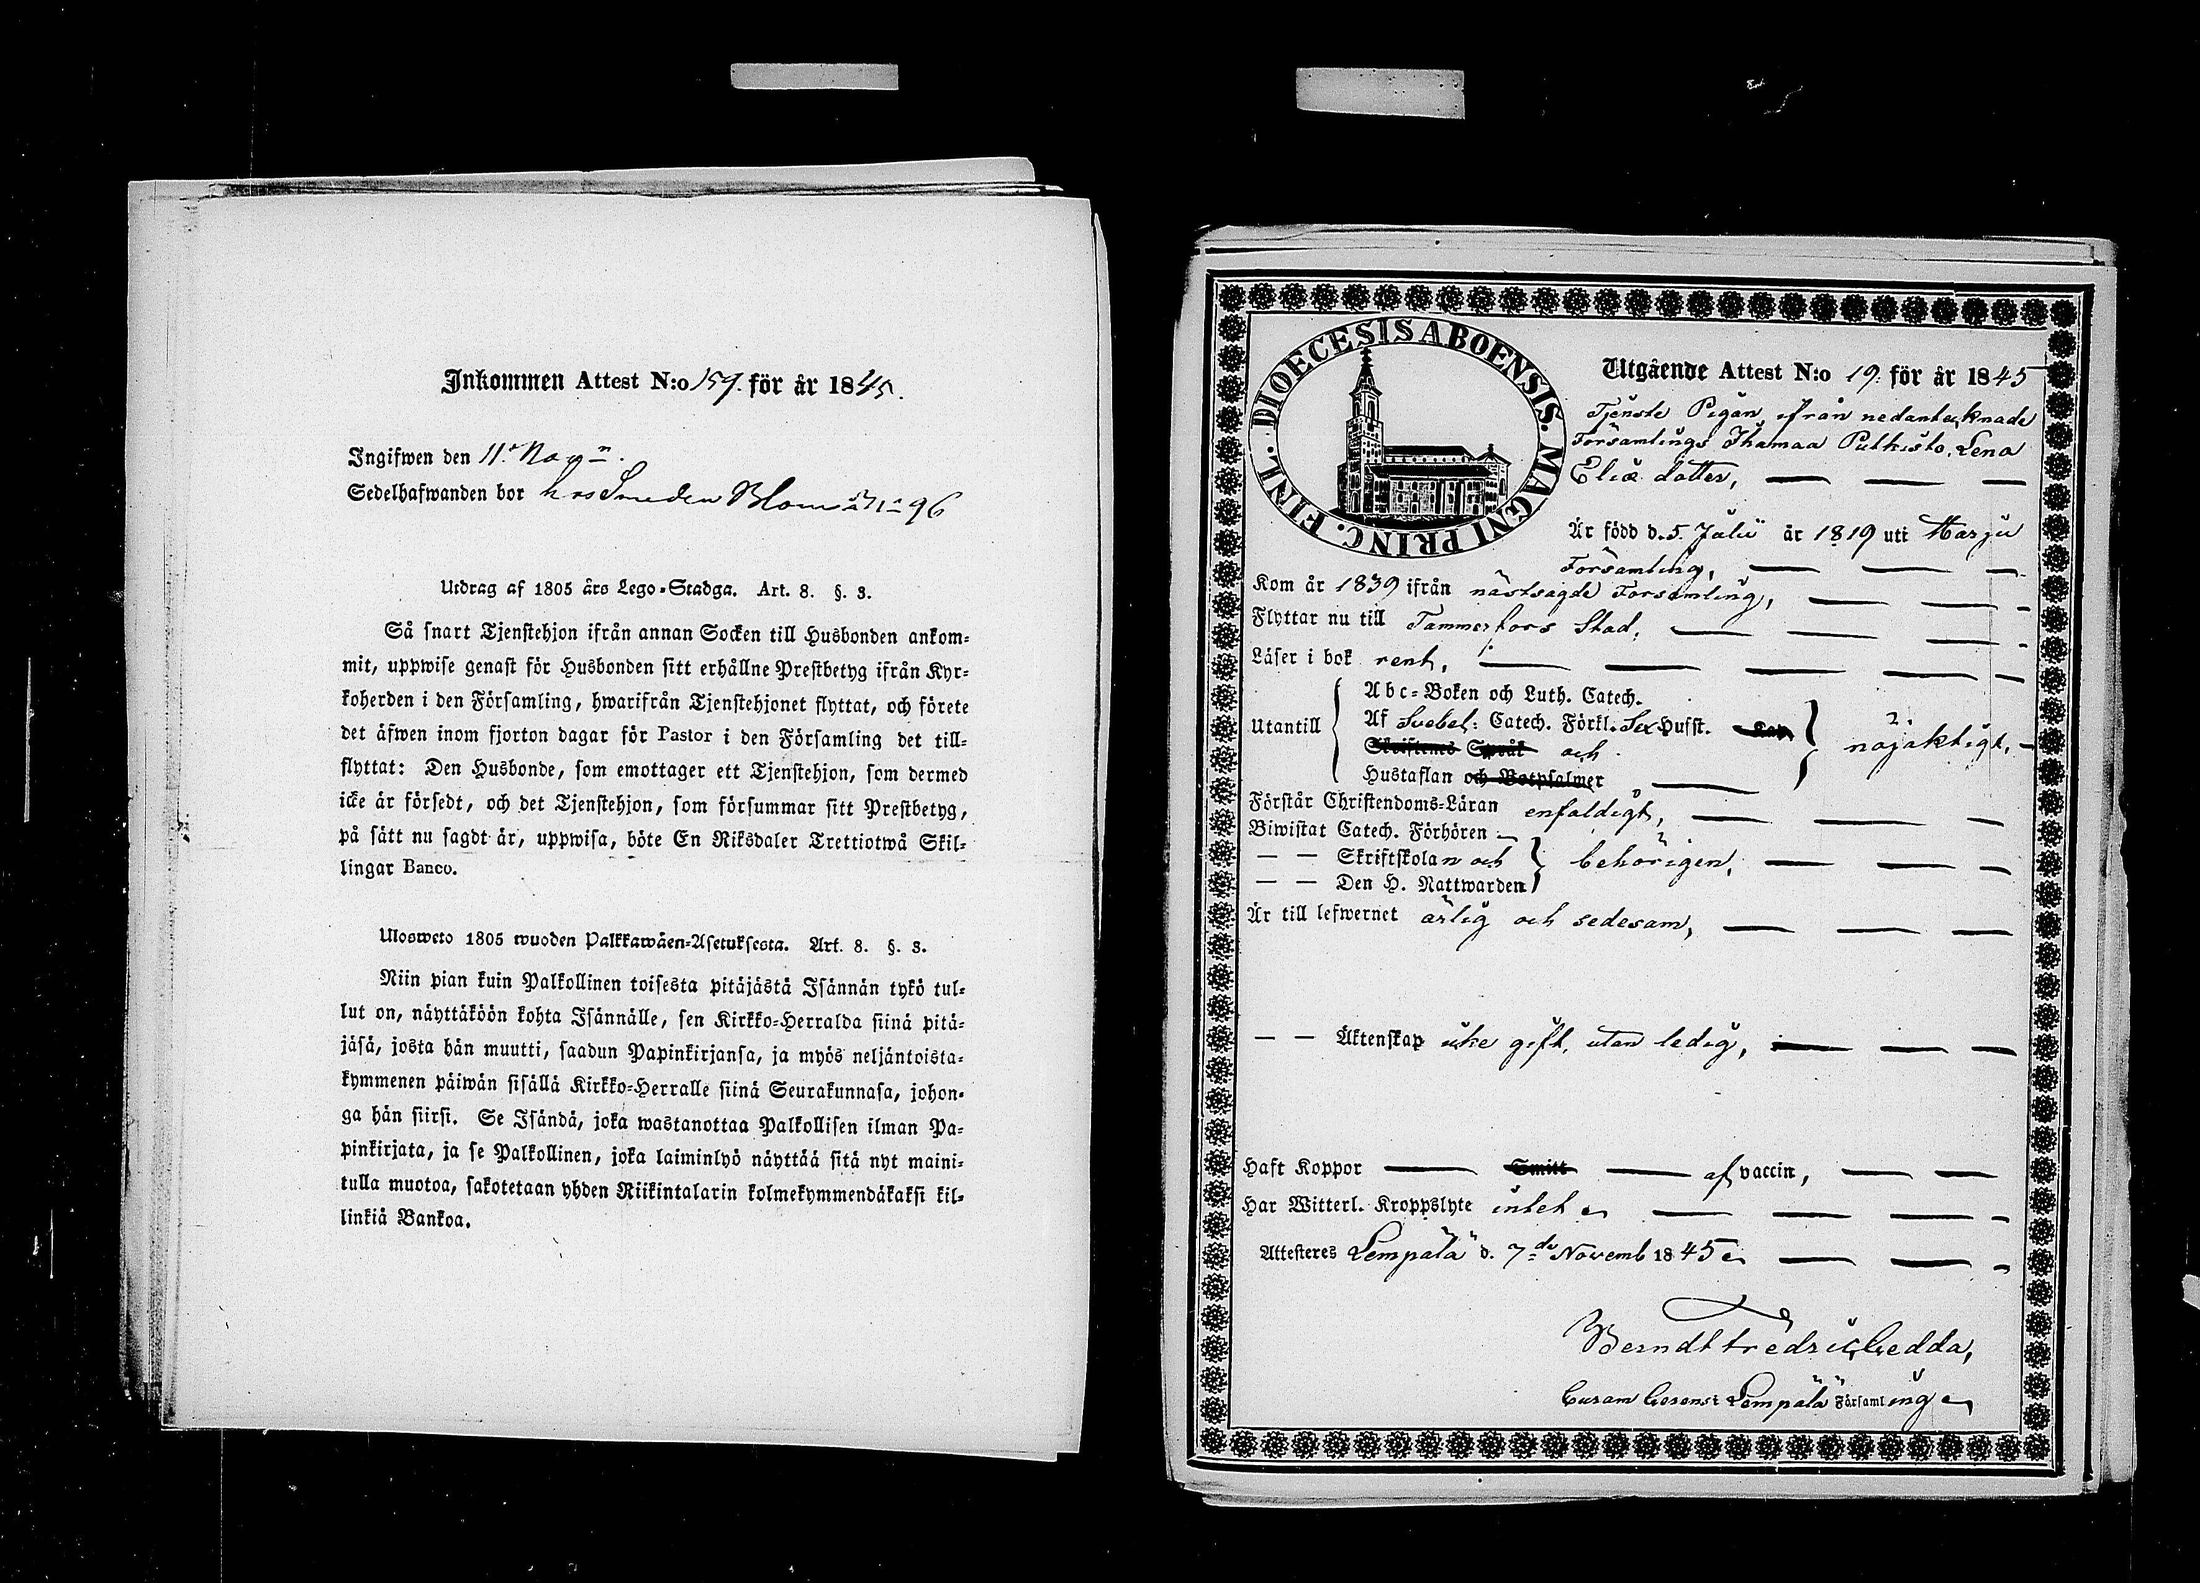 Inkommen Attest N:o 159. för år 1845.
Ingifwen den 11 Nov
Sedelhafwanden bor hos Smeden Blom 96
Utdrag af 1805 års Lego-Stadga. Art. 8. §. 3.
Så snart Tjenstehjon ifrån annan Socken till Husbonden ankom-
mit, uppwise genast för Husbonden sitt erhållne Prestbetyg ifrån Kyr-
koherden i den Församling, hwarifrån Tjenstehjonet flyttat, och förete
det äfwen inom fjorton dagar för Pastor i den Församling det till-
flyttat: Den Husbonde, som emottager ett Tjenstehjon, som dermed
icke är försedt, och det Tjenstehjon, som försummar sitt Prestbetyg,
på sätt nu sagdt är, uppwisa, böte En Riksdaler Trettiotwå Skil-
lingar Banco.
Ulosweto 1805 wuoden Palkkawäen-Asetuksesta. Art. 8. §. 3.
Niin pian kuin Palkollinen toisesta pitäjästä Isännän tykö tul-
lut on, näyttäköön kohta Isännälle, sen Kirkko-Herralda siinä pitä-
jäsä, josta hän muutti, saadun Papinkirjansa, ja myös neljäntoista-
kymmenen päiwän sisällä Kirkko-Herralle siinä Seurakunnasa, johon-
ga hän siirsi. Se Isändä, joka wastanottaa Palkollisen ilman Pa-
pinkirjata, ja se Palkollinen, joka laiminlyö näyttää sitä nyt maini-
tulla muotoa, sakotetaan yhden Riikintalarin kolmekymmendäkaksi kil-
linkiä Bankoa.
DIOECESIS ABOENSIS. MAGNI PRINC. FINL.
Utgående Attest N:o 19. för år 1845
Tjenste Pigan ifrån nedantecknade
Församlings Ihamaa Putkisto, Lena
Eliæ dotter,
Är född d. 5. Julii år 1819 uti Harju
Församling,
Kom år 1839 ifrån nästsagde Forsamling,
Flyttar nu till Tammerfors Stad,
Läser i bok rent,
Utantill
Abc-Boken och Luth. Catech.
Af Svebel: Catech. Förkl. Sex Hufst. Kap
Skriftenes Språk och
Hustaflan och Botpsalmer
nöjaktigt,
Förstår Christendoms-Läran enfaldigt,
Biwistat Catech. Förhören
— — Skriftskolan och behörigen,
— — Den H. Nattwarden
Är till lefwernet ärlig och sedesam,
— — Äktenskap icke gift, utan ledig,
Haft Koppor Smitt af vaccin,
Har Witterl. Kroppslyte intet
Attesteres Lempälä d. 7de Novemb 1845
Berndt Fredric Gedda,
Curam Gerens i Lempälä Församling